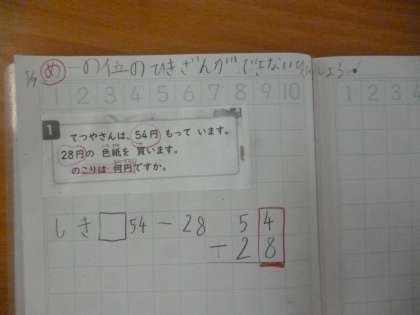 5/9 め 一の位のひきざんができないひっしょう。
1 2 3 4 5 6 7 8 9 10
1 2 3 4
1
てつやさんは、54円 もって います。
28円の 色紙を 買います。
のこりは 何円ですか。
しき 54-28
54
-28